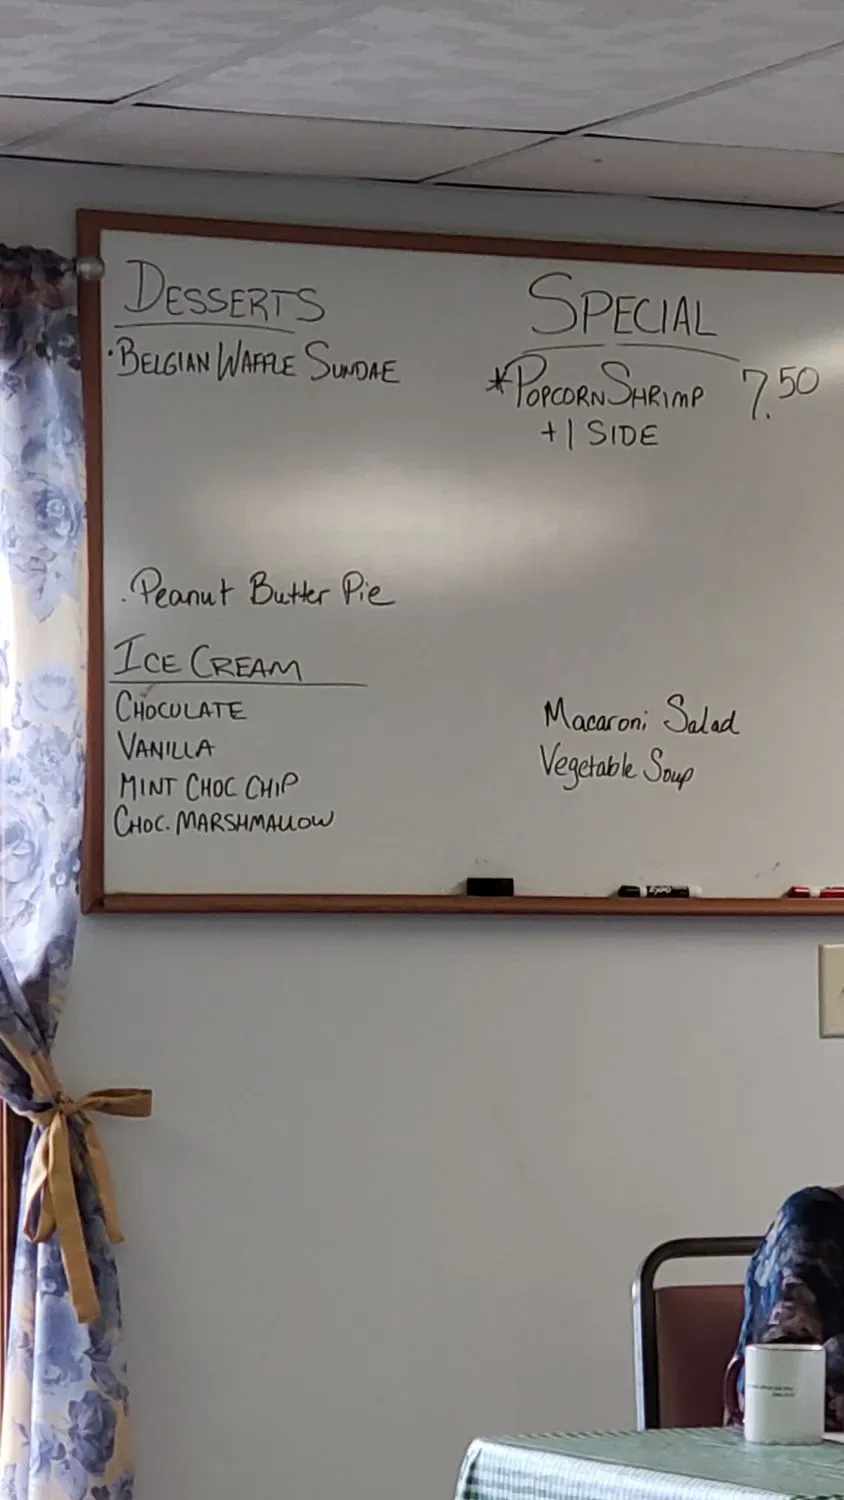 DESSERTS
·BELGIAN WAFFLE SUNDAE
. Peanut Butter Pie
ICE CREAM
CHOCOLATE
VANILLA
MINT CHOC CHIP
CHOC. MARSHMALLOW
SPECIAL
*POPCORN SHRIMP 7.50
+ 1 SIDE
Macaroni Salad
Vegetable Soup
EXPO